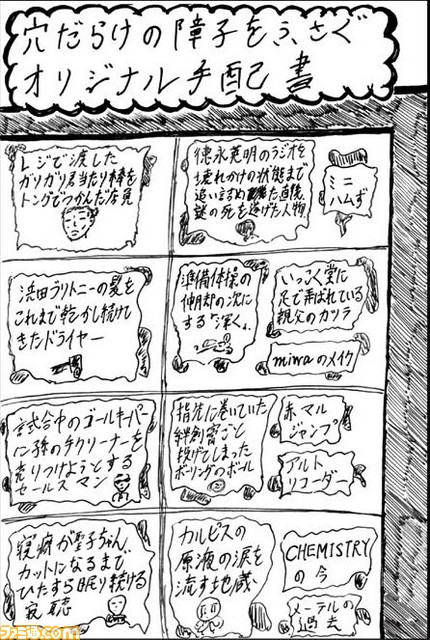 穴だらけの障子をふさぐ
オリジナル手配書
レジで渡した
ガリガリ君当たり棒を
トングでつかんだ店員
徳永英明のラジオを
壊れかけの状態まで
追い詰めた直後、
謎の死を遂げた人物
ミニ
ハムず
浜田ラリトニーの髪を
これまで乾かし続けて
きたドライヤー
準備体操の
伸脚の次に
する「深く」
いっこく堂に
足で弄ばれている
親父のカツラ
miwaのメイク
試合中のゴールキーパー
に孫の手クリーナーを
売りつけようとする
セールスマン
指先に巻いていた
絆創膏ごと
投げてしまった
ボーリングのボール
赤マル
ジャンプ
アルト
リコーダー
寝癖が聖子ちゃん
カットになるまで
ひたすら眠り続ける
寂聴
カルピスの
原液の涙を
流す地蔵
CHEMISTRY
の今
メーテルの
過去
ファミ通.com